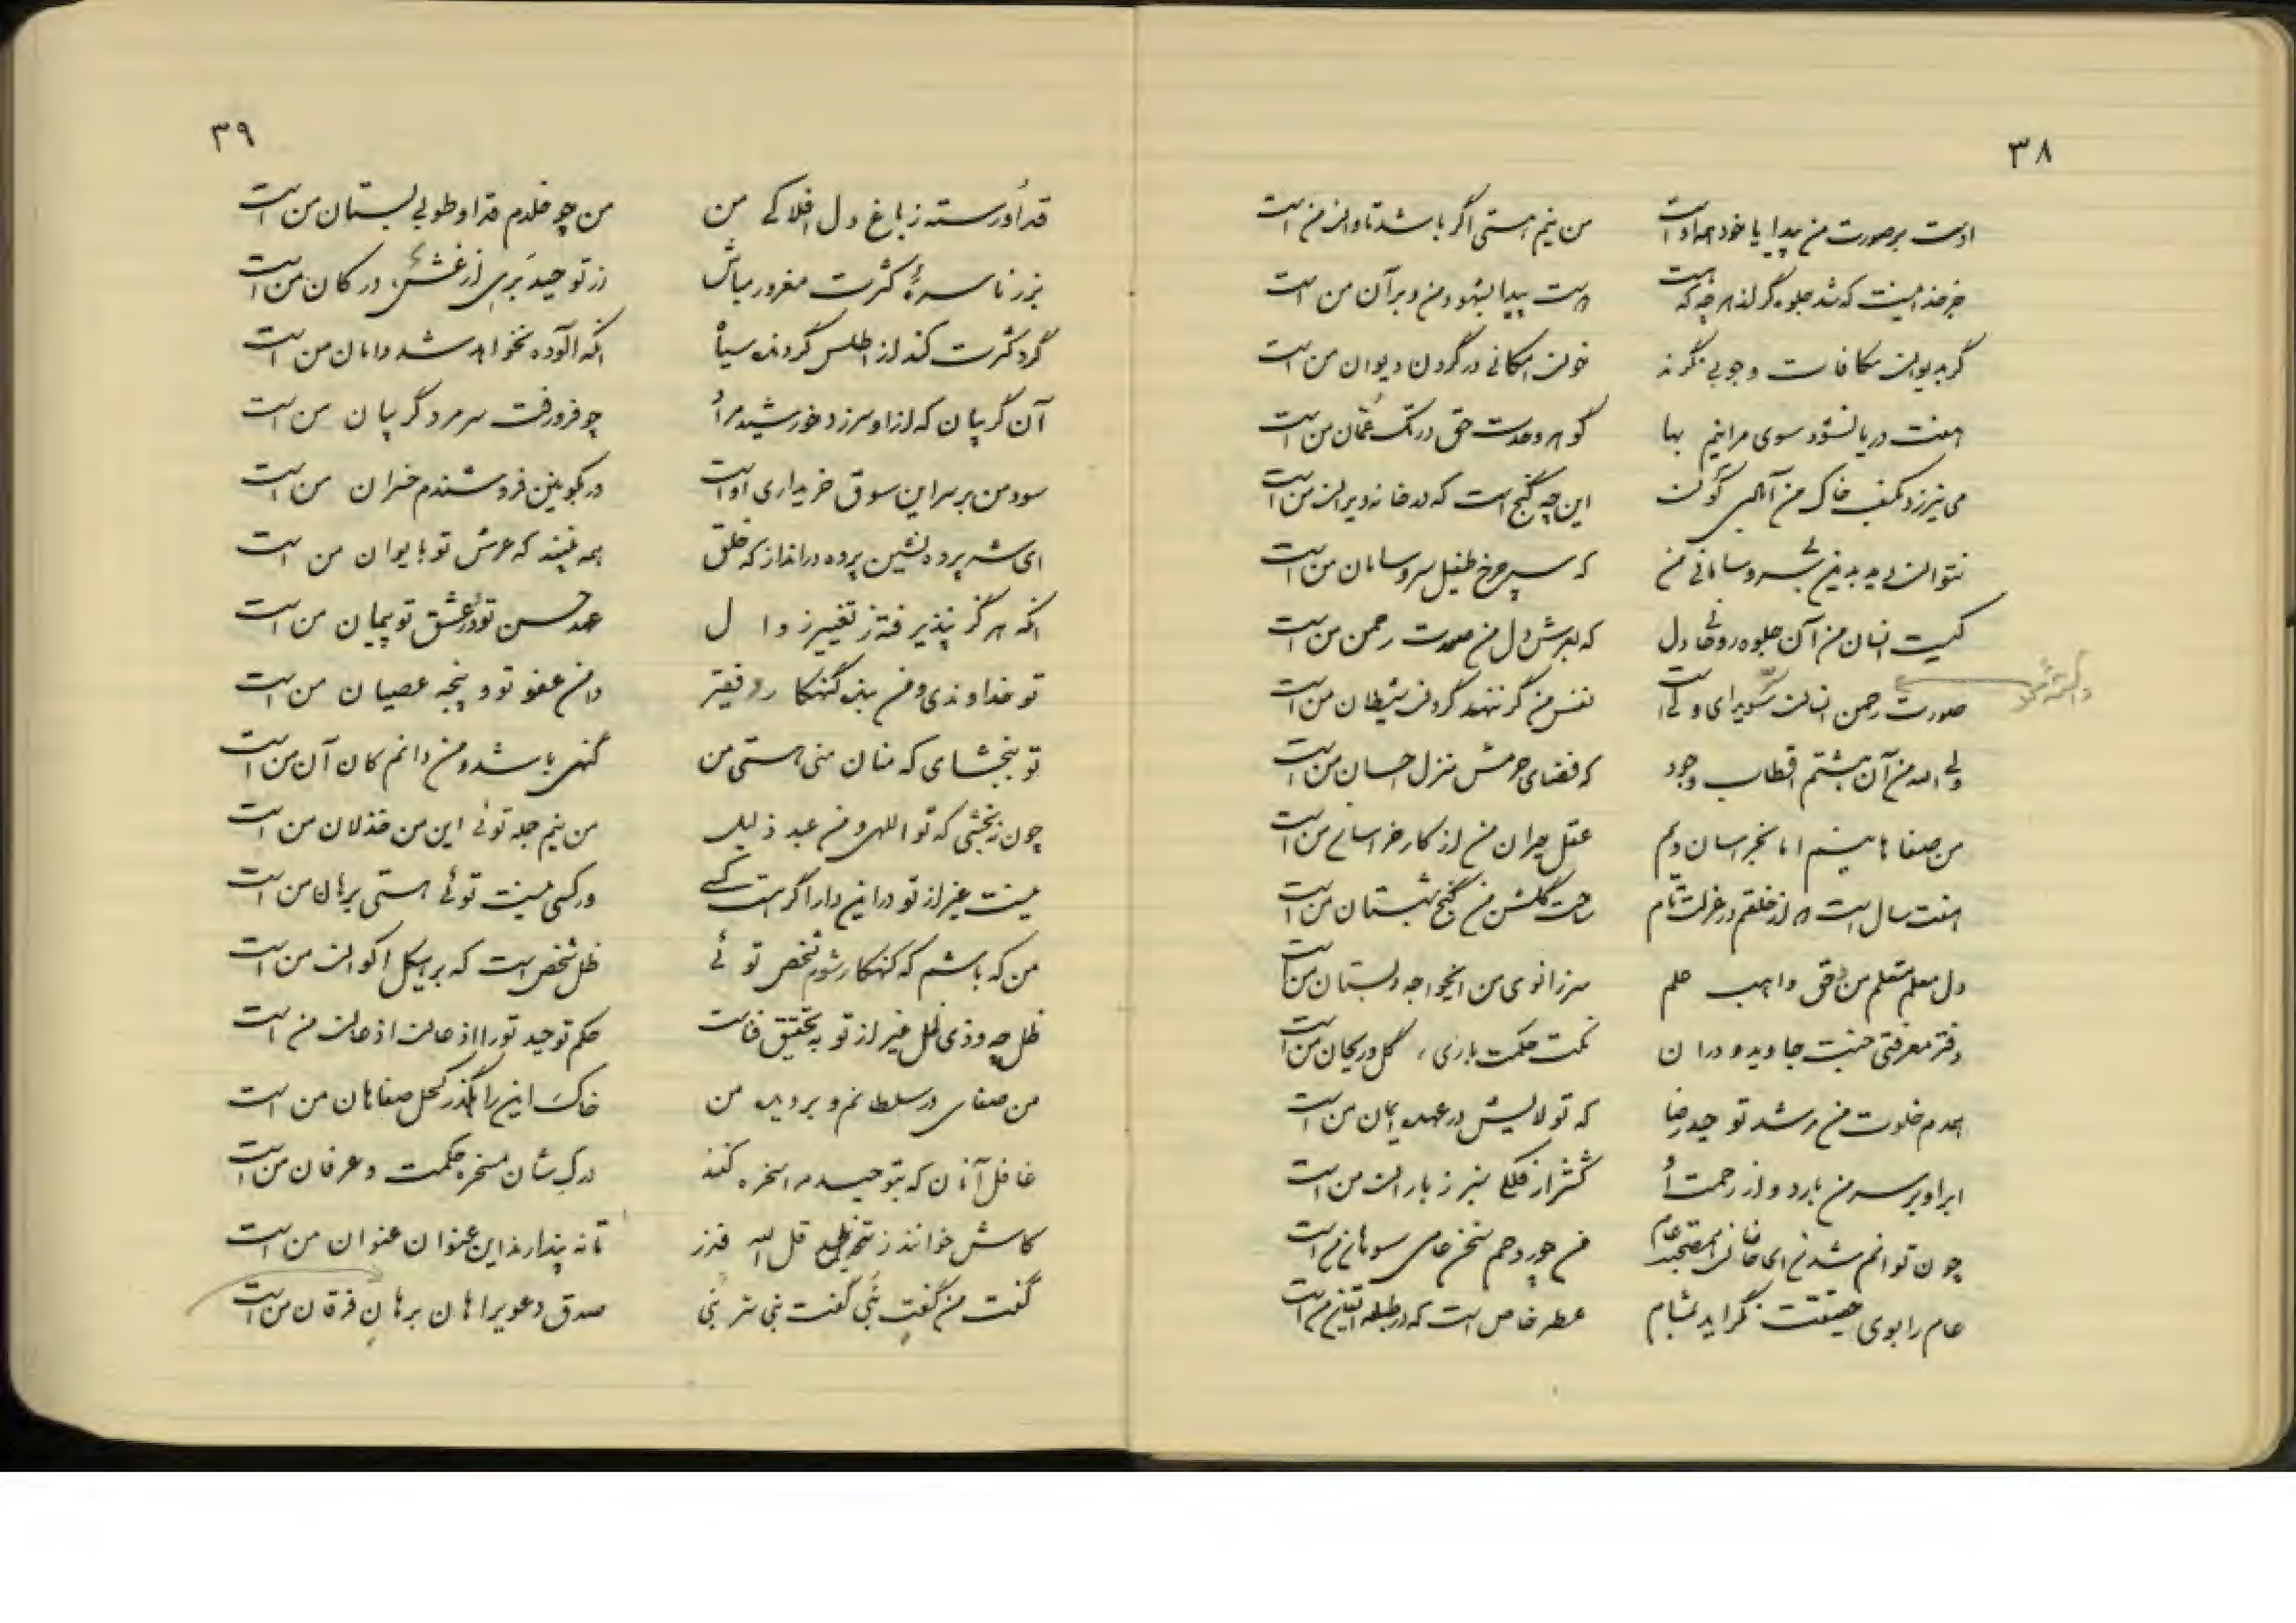 ۳۸
اوست بر صورت من پیدا یا خود همه اوست من نیم هستی اگر باشد تاوان من است
جز خدا نیست که شد جلوه گر از هر چه که هست هست پیدا بشهود من و بر آن من است
گر بدیوان مکافات وجوبی نگرند خون امکانی در گردن دیوان من است
هفت دریا نشود سوی مرا نیم بها گوهر وحدت حق در تک عمان من است
می نیرزد بکف خاک من این چه گنج است که در خانه ویران من است
نتوان دید بدین بی سر و سامانی من که سپهر چرخ طفیل سر و سامان من است
کیست انسان من آن جلوه روحانی دل که بعرش دل من صورت رحمن من است
صورت رحمن انسان نفس من گر ننهد گردن شیطان من است
ولی الله من آن هشتم اقطاب وجود که فضای حرمش منزل احسان من است
من صفاهانیم اما بخراسان دلم عقل حیران من از کار خراسان من است
هفت سال است که از خلقم در عزلت تام ساحت گلشن من کنج شبستان من است
دل معلم متعلم من و حق واهب علم سر زانوی من ای خواجه دبستان من است
دفتر معرفتی جنت جاوید و در آن نکت حکمت باری گل و ریحان من است
همدم خلوت من مرشد توحید رضا که تولایش در عهد ایمان من است
ابر او بر سر من بارد و از رحمت او کشتزار فلکی سبز ز باران من است
چون توانم شدن ای خاقانی من چو روحم سخن عامی سوهان من است
عام را بوی حقیقت نگراید بمشام عطر خاص است که در طبله من است
۳۹
قد او رسته ز باغ دل افلاکی من من چو خلدم قد او طوبی بستان من است
بزر ناسره کثرت مغرور مباش زر توحید بری از غش در کان من است
گرد کثرت کند از اطلس گردون سیاه آنکه آلوده نخواهد شد دامان من است
آن گریبان که از او سر زد خورشید مراد چو فرو رفت سر مرد گریبان من است
سود من بر سر این سوق خریداری اوست ور بکونین فروشندم خسران من است
ای شه پرده نشین پرده در انداز که خلق همه بینند که عرش تو بایوان من است
آنکه هرگز نپذیرفته ز تغییر زوال عهد حسن تو و در عشق تو پیمان من است
تو خداوندی و من بنده گنهکار و فقیر دامن عفو تو و پنجه عصیان من است
تو ببخشای که منان منی هستی من گنهی باشد و من دانم کان آن من است
چون نبخشی که تو اللهی و من عبد ذلیل من نیم جمله توئی این من خذلان من است
نیست غیر از تو در این دار اگر هست کسی ور کسی نیست توئی هستی برهان من است
من که باشم که گنهکار شوم شخص توئی ظل شخص است که بر هیکل اکوان من است
ظل چه و ذی ظل غیر از تو به تحقیق فناست حکم توحید تو را اذعان اذعان من است
من صفای در سلطانم و بر دیده من خاک این راهگذر کحل صفاهان من است
غافل آنان که بتوحید مرا سخره کنند درک شان مسخره حکمت و عرفان من است
کاش خوانند قل الله فذر تا نه پندارند این عنوان عنوان من است
گفت من گفت نبی گفت نبی سر نبی صدق دعوی را هان برهان فرقان من است